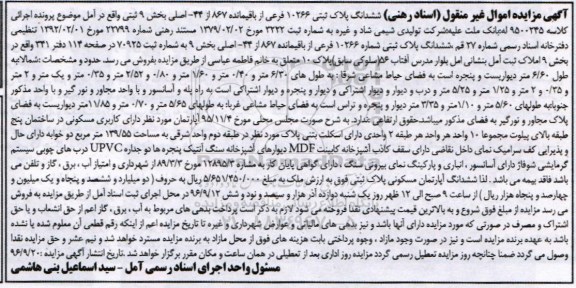 آگهی مزایده اموال غیر منقول (اسناد رهنی) ششدانگ پلاک ثبتی ۱۰۲۶۶ فرعی از باقیمانده ۸۶۷ از ۴۴- اصلی بخش ۹ ثبتی واقع در آمل موضوع پرونده اجرائی
کلاسه ۹۵۰۰۳۴۵ له:بانک ملت علیه:شرکت تولیدی شیمی شاد و غیره به شماره ثبت ۳۲۲۲ مورخ ۱۳۷۹/۰۲/۰۲ مستند رهنی شماره ۲۲۷۹۹ مورخ ۱۳۹۲/۰۲/۰۱ تنظیمی
دفترخانه اسناد رسمی شماره ۲۷ قم، ششدانگ پلاک ثبتی شماره ۱۰۲۶۶ فرعی از باقیمانده ۸۶۷ از ۴۴- اصلی بخش ۹ به شماره ثبت ۷۰۹۲۵ در صفحه ۱۱۴ دفتر ۳۴۱ واقع در
بخش ۹ املاک ثبت آمل بنشانی امل بلوار مدرس آفتاب ۵۶ سلوکی ساختمان پلاک ۱۰ متعلق به خانم فاطمه عباسی از طریق مزایده بفروش می رسد. حدود و مشخصات :شمالا:به
طول ۶/۶۰ متر دیواریست و پنجره است به فضای حیاط مشاعی شرقا: به طول های ۶/۳۰ متر و ۰/۴۰ متر و ۱/۶۰ متر و ۰/۸۰ متر و ۲/۵۲ متر و ۰/۳۵ متر و یک متر و ۲ متر
و ۰/۳۵ متر و ۲ متر و ۱/۲۵ متر و ۵/۲۵ متر و درب و دیوار و دیوار اشتراکی و دیوار و پنجره و دیوار اشتراکی است به راه پله و آسانسور و با واحد مجاور و نور گیر و با واحد مذکور
جنوبا:به طولهای ۵/۶۰ متر و ۱/۱۰ متر و ۳/۳۵ متر دیوار و پنجره و تراس است به فضای حیاط مشاعی غربا: به طولهای ۵/۶۵ متر و ۰/۷۰ متر و ۱۱/۸۵ متر دیواریست به فضای
پلاک مجاور و نورگیر به فضای مذکور میباشد.حقوق ارتفاقی ندارد. به شرح صورت مجلس محلی مورخ ۹۵/۱۱/۴ آپارتمان مورد نظر دارای کاربری مسکونی در ساختمان پنج
طبقه بالای پیلوت مجموعا ۱۰ واحد هر واحد هر طبقه ۲ واحدی دارای اسکلت بتنی پلاک مورد نظر در طبقه دوم واحد شرقی به مساحت ۱۳۹/۵۵ متر مربع دو خوابه دارای حال
و پذیرایی کف سرامیک نمای داخل نقاشی دارای سقف کاذب آشپزخانه کابینت MDF دیوارهای آشپزخانه سنگ آنتیک پنجره ها دو جداره UPVC درب های چوبی سیستم
گرمایشی شوفاژ دارای آسانسور ، انباری و پارکینگ نمای بیرونی سنگ ، دارای گواهی پایان کار به شماره ۱۲۸۹۵/۳ مورخ ۸۹/۳/۲ از شهرداری و امتیاز آب ، برق ، گاز و تلفن می
باشد فاقد بیمه می باشد . لذا ششدانگ آپارتمان مسکونی پلاک ثبتی فوق به ارزش ملک به مبلغ ۵/۶۵۱/۴۵۰/۰۰۰ ریال به حروف ( دو میلیارد و ششصد و پنجاه و یک میلیون و
چهارصد و پنجاه هزار ریال ) از ساعت ۹ صبح الی ۱۲ ظهر روز یک شنبه دوازده آذر هزار و سیصد و نود و شش ۹۶/۹/۱۲ در محل اجرای ثبت اسناد آمل از طریق مزایده به فروش
می رسد مزایده از مبلغ فوق شروع و به بالاترین قیمت پیشنهادی نقدا فروخته می شود لازم به ذکر است پرداخت بدهی های مربوط به آب ، برق ، گاز اعم از حق انشعاب و یا حق
اشتراک و مصرف در صورتی که مورد مزایده دارای آنها باشد و نیز بدهی های مالیاتی و عوارض شهرداری و غیره تا تاریخ مزایده اعم از اینکه رقم قطعی آن معلوم شده یا نشده
باشد به عهده برنده مزایده است و نیز در صورت وجود مازاد ، وجوه پرداختی بابت هزینه های فوق از محل مازاد به برنده مزایده مسترد خواهد شد و نیم عشر و حق مزایده نقدا
وصول می گردد ضمنا چنانچه روز مزایده تعطیل رسمی گردد مزایده روز اداری بعد از تعطیلی در همان ساعت و مکان مقرر برگزار خواهد شد.تاریخ انتشار آگهی مزایده : ۹۶/۹/۲۰
مسئول واحد اجرای اسناد رسمی آمل - سید اسماعیل بنی هاشمی